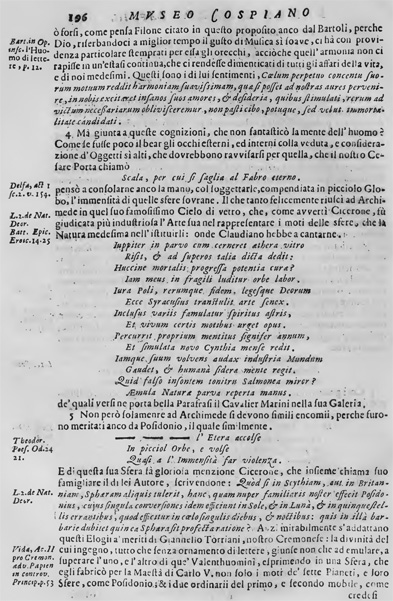 196 MVSEO COSPIANO
ò forsi, come pensa Filone citato in questo proposito anco dal Bartoli, perche
Dio, riserbandoci a miglior tempo il gusto di Musica sì soave, ci hà con provi-
denza particolare stemprati per essa gli orecchi, acciòche quell'armonia non ci
rapisse in un'estasi continua, che ci rendesse dimenticati di tutti gli affari della vita,
e di noi medesimi. Questi sono i di lui sentimenti, Cœlum perpetuo concentu suo-
rum motuum reddit harmoniam suavissimam, quæ si posset ad nostras aures perveni-
re, in nobis excitaret insanos suos amores, & desideria, quibus stimulati, rerum ad
victum necessariarum oblivisceremur, non pasti cibo, potuque, sed velut immorta-
litate candidati.
Bart. in Op.
insc. l'Huo-
mo di lette-
re, p. 12.
4. Mà giunta a queste cognizioni, che non fantasticò la mente dell'huomo?
Come se fusse poco il bear gli occhi esterni, ed interni colla veduta, e considera-
zione d'Oggetti sì alti, che dovrebbono ravvisarsi per quella, che il nostro Ce-
sare Porta chiamò
Scala, per cui si saglia al Fabro eterno.
Delfa, att 1
sc. 2. v. 154.
pensò a consolarne anco la mano, col soggettarle, compendiata in picciolo Glo-
bo, l'immensità di quelle sfere sovrane. Il che tanto felicemente riuscì ad Archi-
mede in quel suo famosissimo Cielo di vetro, che, come avvertì Cicerone, fù
giudicata più industriosa l'Arte sua nel rappresentare i moti delle sfere, che la
Natura medesima nell'istituirli: onde Claudiano hebbe a cantarne.
L. 2. de Nat.
Deor.
Batt. Epic.
Eroic. 14-25
Iuppiter in parvo cum cerneret æthera vitro
Risit, & ad superos talia dicta dedit:
Huccine mortalis progressa potentia curæ?
Iam meus in fragili luditur orbe labor.
Iura Poli, rerumque fidem, legesque Deorum
Ecce Syracusius transtulit arte senex.
Inclusus variis famulatur spiritus astris,
Et vivum certis motibus urget opus.
Percurrit proprium mentitus signifer annum,
Et simulata novo Cynthia mense redit.
Iamque suum volvens audax industria Mundum
Gaudet, & humanâ sidera mente regit.
Quid falso insontem tonitru Salmonea miror?
Æmula Naturæ parva reperta manus.
de' quali versi ne porta bella Parafrasi il Cavalier Marini nella sua Galeria.
5 Non però solamente ad Archimede si devono simili encomii, perche furo-
no meritati anco da Posidonio, il quale similmente.
l'Etera accolse
In picciol Orbe, e volse
Quasi a l'Immensità far violenza.
Theodor.
Pros. Od. 24
21.
E di questa sua Sfera fà gloriosa menzione Cicerone, che insieme chiama suo
famigliare il di lei Autore, scrivendone: Quòd si in Scythiam, aut in Britan-
niam, Sphæram aliquis tulerit, hanc, quam nuper familiaris noster effecit Posido-
nius, cujus singulæ conversiones idem efficiunt in Sole, & in Lunâ, & in quinque stel-
lis errantibus, quod efficitur in cœlo singulis diebus, & noctibus: quis in illâ bar-
barie dubitet quin ea Sphæra sit profecta ratione?
L. 2. de Nat.
Deor.
mirabilmente s'addattano
questi Elogi a' meriti di Giannello Torriani, nostro Cremonese: la divinità del
cui ingegno, tutto che senza ornamento di lettere, giunse non che ad emulare, a
superare l'uno, e l'altro di que' Valenthuomini, esprimendo in una Sfera, che
egli fabricò per la Maestà di Carlo V, non solo i moti de' sette Pianeti, e loro
Sfere, come Posidonio, & i due ordinari del primo, e secondo mobile, come
Vida, Ac. II
pro Cremon.
adv. Papien
in controv.
Princip. p. 53
credesi